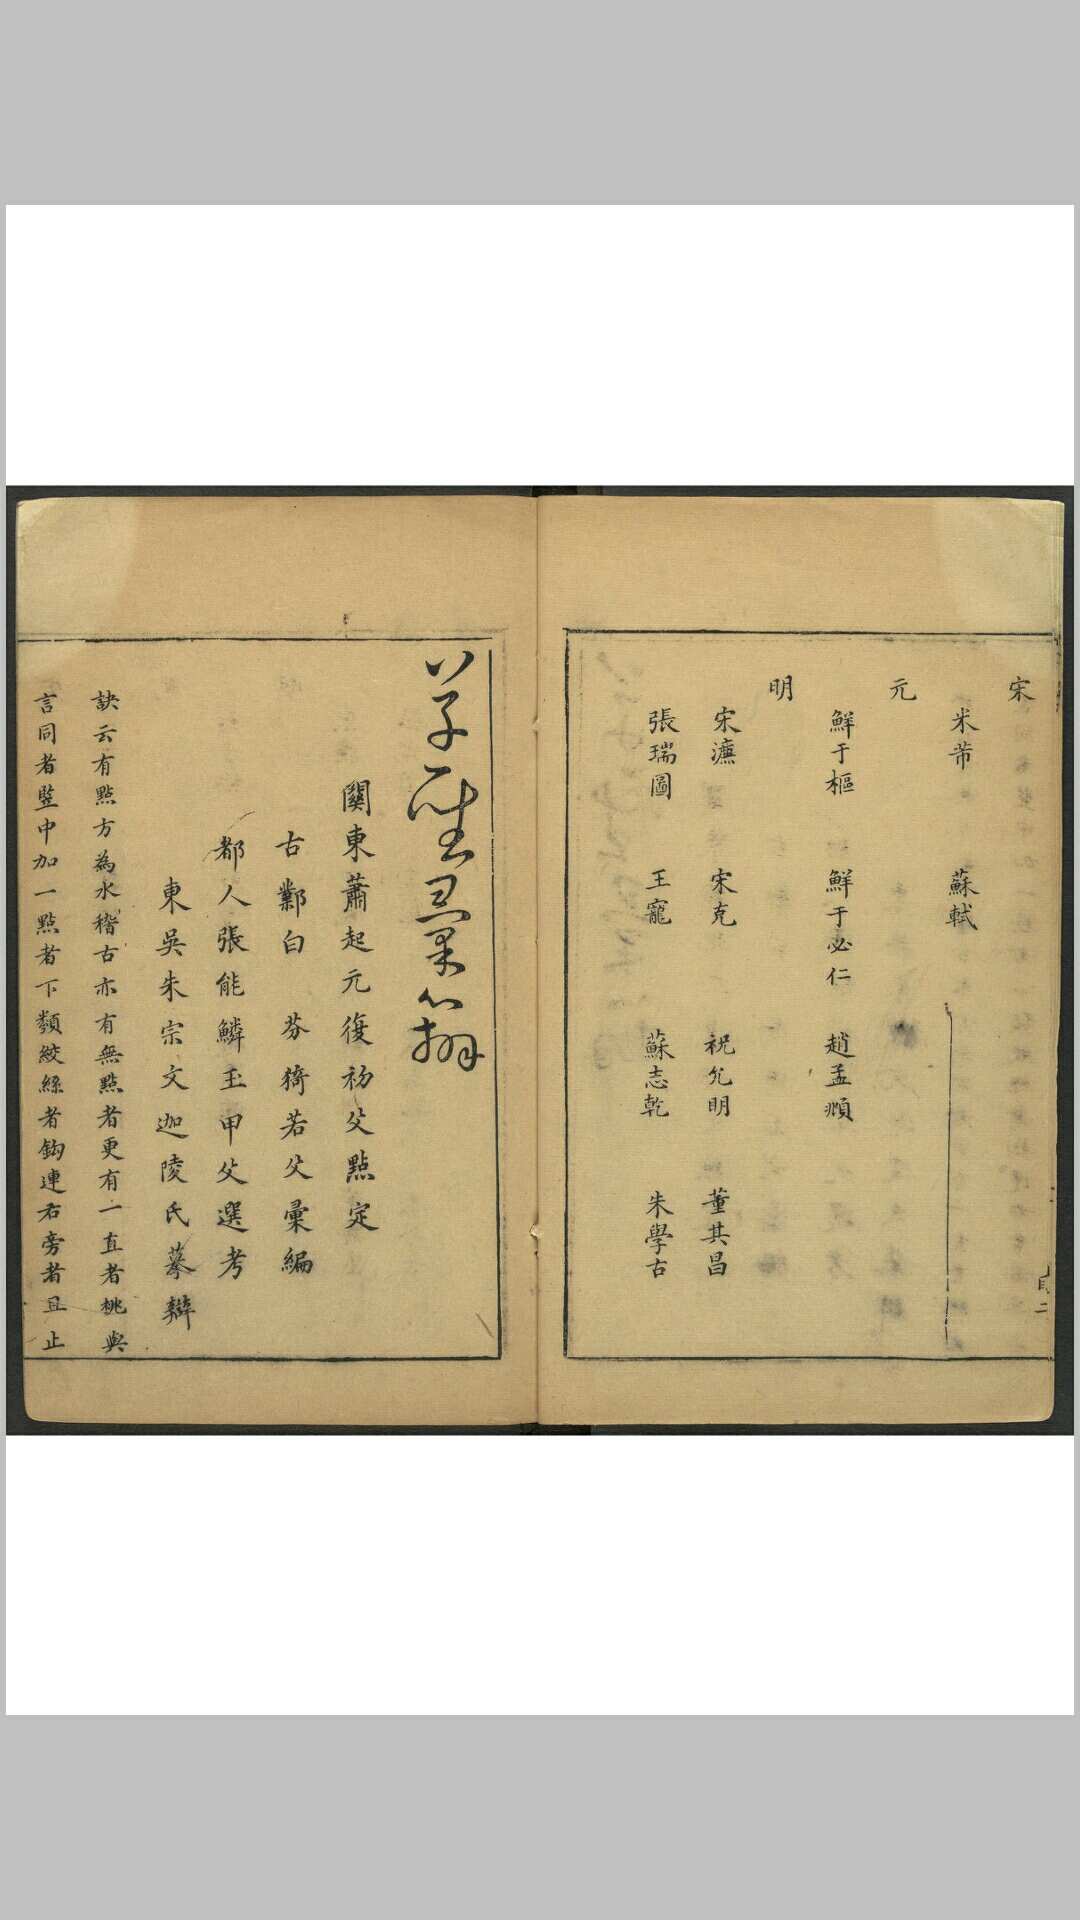 宋
米芾 蘇軾
元
鮮于樞 鮮于必仁 趙孟頫
明
宋濂 宋克 祝允明 董其昌
張瑞圖 王寵 蘇志乾 朱學古
草聖彙辯
關東蕭起元復初父點定
古鄴白 芬猗若父彙編
都人張能鱗玉甲父選考
東吳朱宗文迦陵氏摹辯
訣云有點方為水稽古亦有無點者更有一直者桃與
言同者豎中加一點者下類絞絲者鈎連右旁者且止